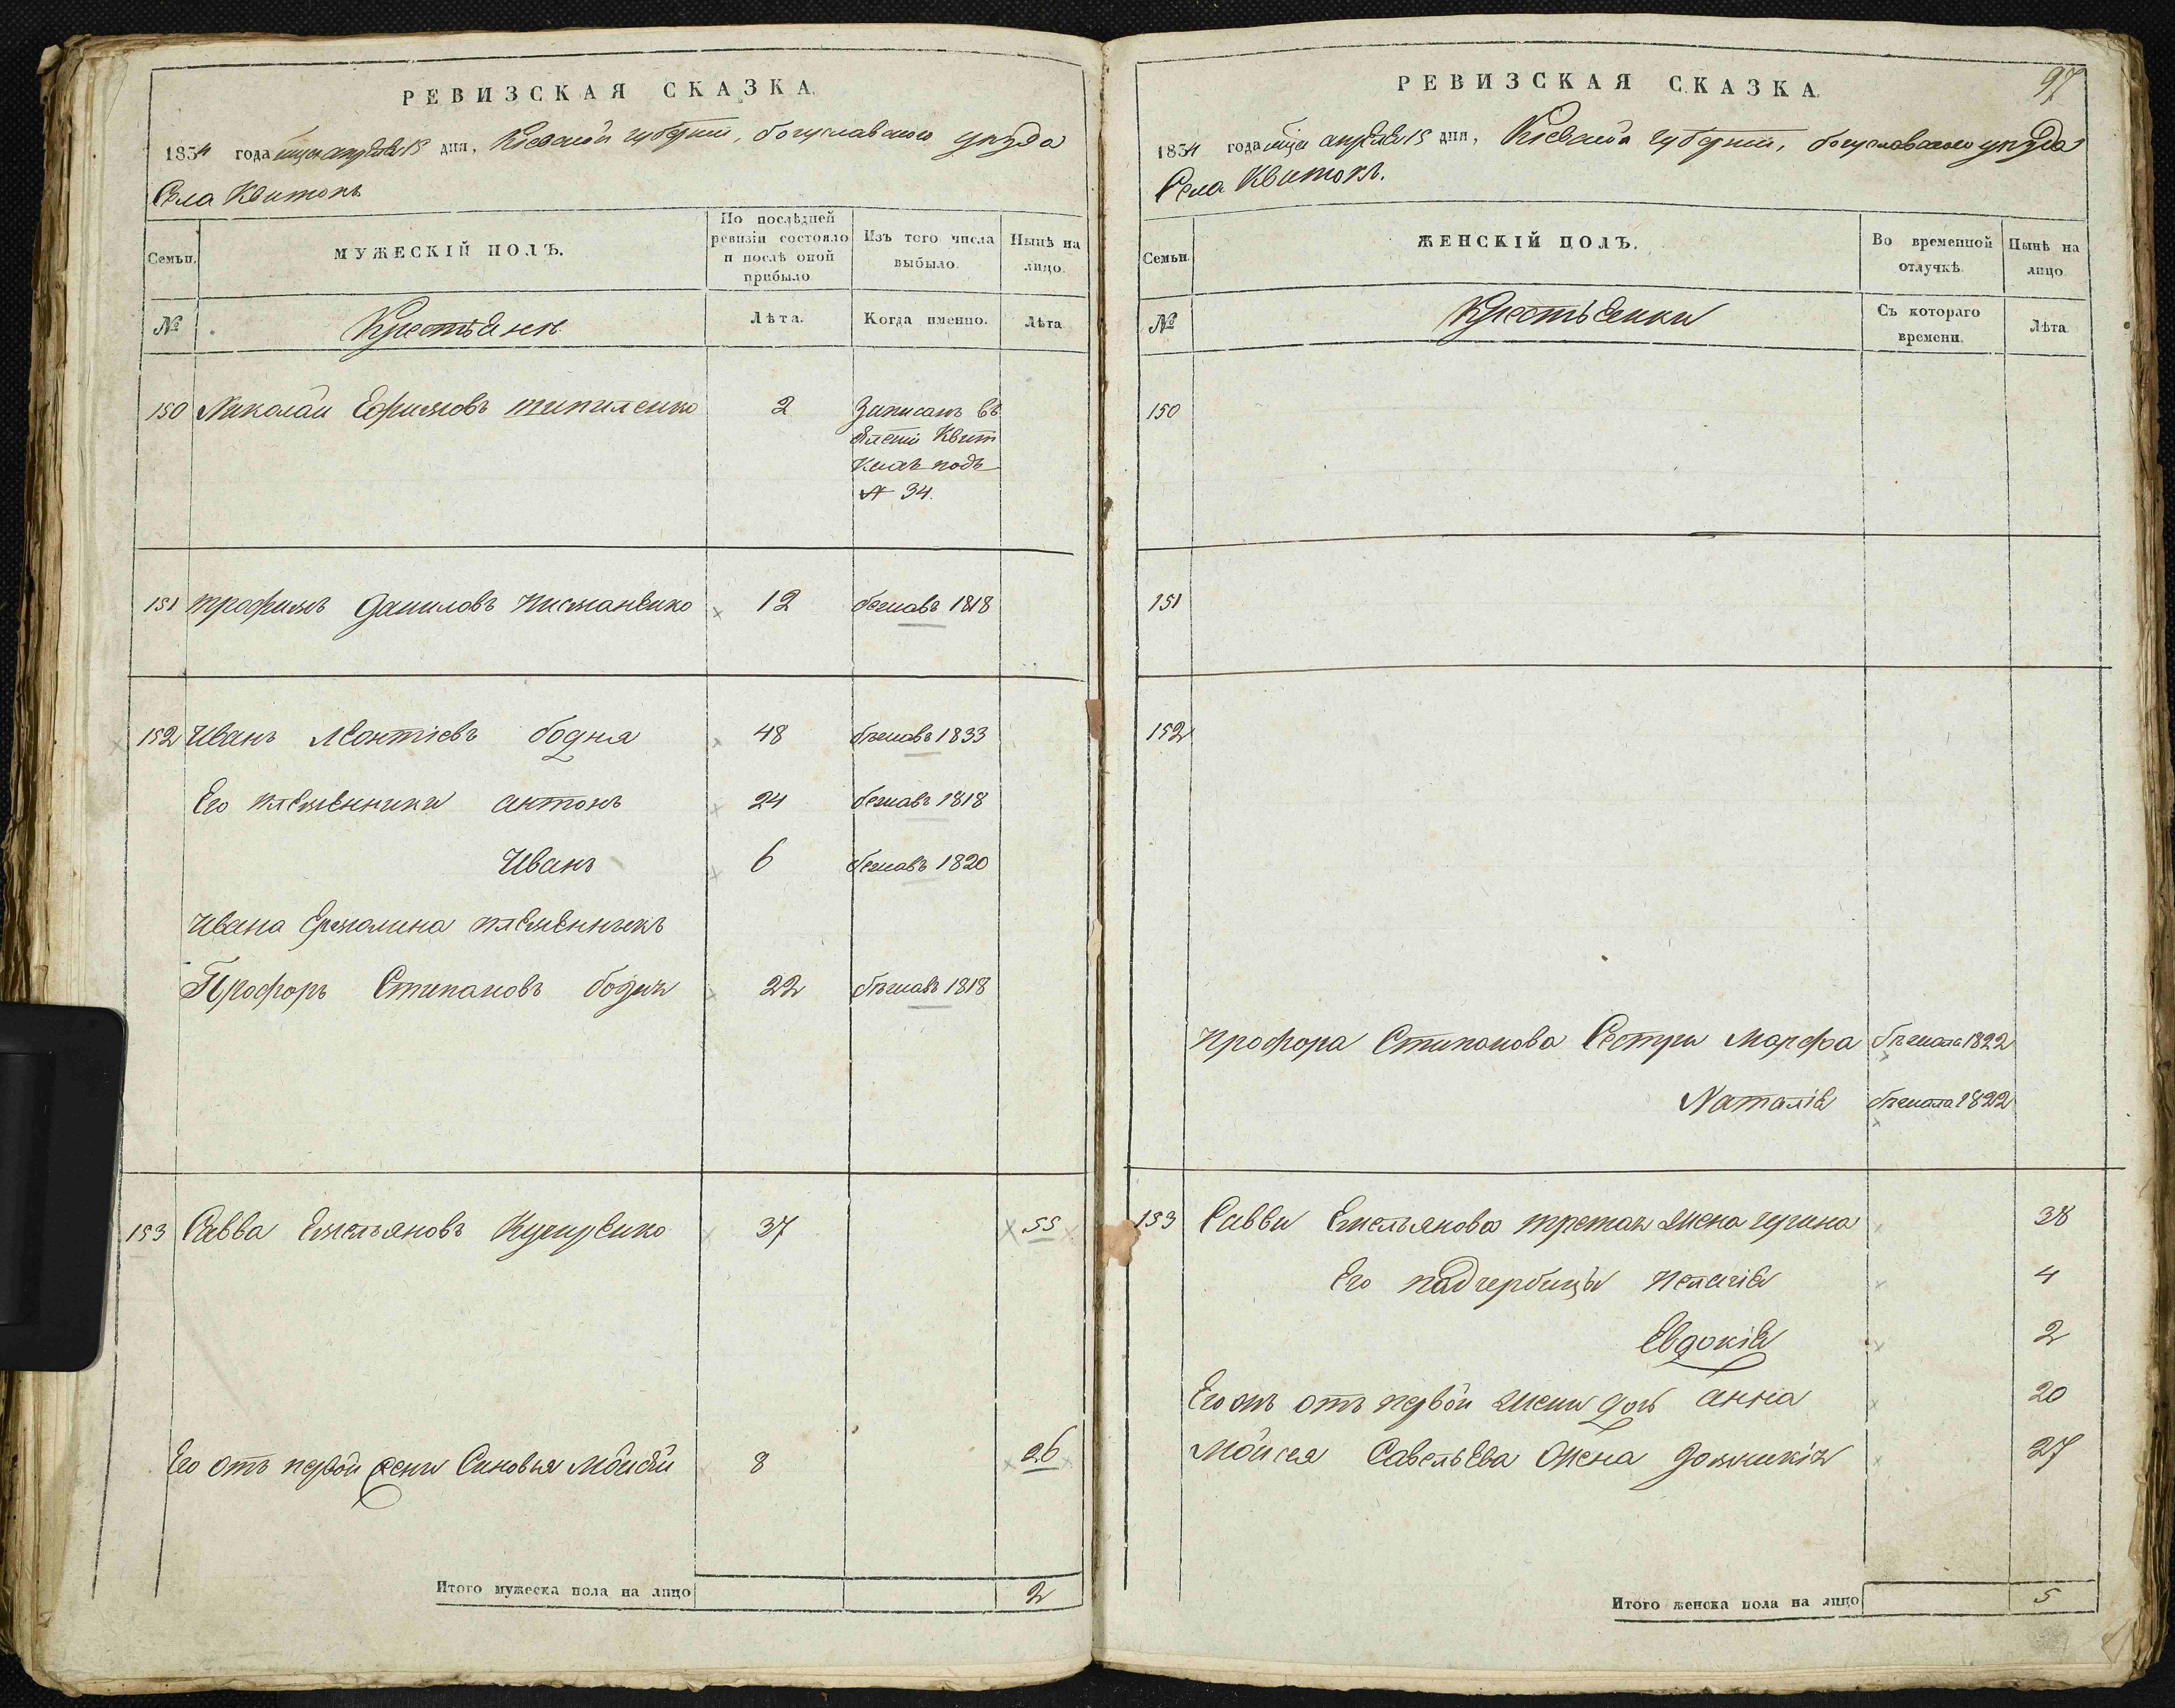 РЕВИЗСКАЯ СКАЗКА
1834 года мца апреля 15 дня, Кіевской губерніи, богуславского уезда
Села Квитокъ
Семьи.
МУЖЕСКІЙ ПОЛЪ.
По послѣдней ревизіи состояло и послѣ оной прибыло
Изъ того числа выбыло.
Нынѣ на лицо.
№
Крестьяне
Лѣта.
Когда именно.
Лѣта
150 Николай Ефимовъ 2 Записанъ въ
Квит
подъ
№ 34.
151 трофимъ даниловъ 12 бежавъ 1818
152 Иванъ Леонтіевъ бодня 48 бежавъ 1833
Его племенники антонъ 24 бежавъ 1818
Иванъ 6 бежавъ 1820
Ивана племенникъ
Профоръ Степановъ бодня 22 бежавъ 1818
153 Савва Емельяновъ 37 55
Его отъ первой жени Синовья Мойсей 8 26
Итого мужеска пола на лицо 2
97
РЕВИЗСКАЯ СКАЗКА
1834 года мца апреля 15 дня, Кіевской губерніи, богуславского уезда
Села Квитокъ.
Семьи
ЖЕНСКІЙ ПОЛЪ.
Во временной отлучкѣ.
Нынѣ на лицо
№
Крестьянки
Съ котораго времени.
Лѣта
150
151
152
Профора Степанова Сестри Марфа бежала 1822
Наталія бежала 1822
153 Савви Емельянова третая жена 38
Его падчерицы Пелагія 4
Евдокія 2
Его отъ первой жени дочь анна 20
Мойсея Савельева жена домникія 27
Итого женска пола на лицо 5